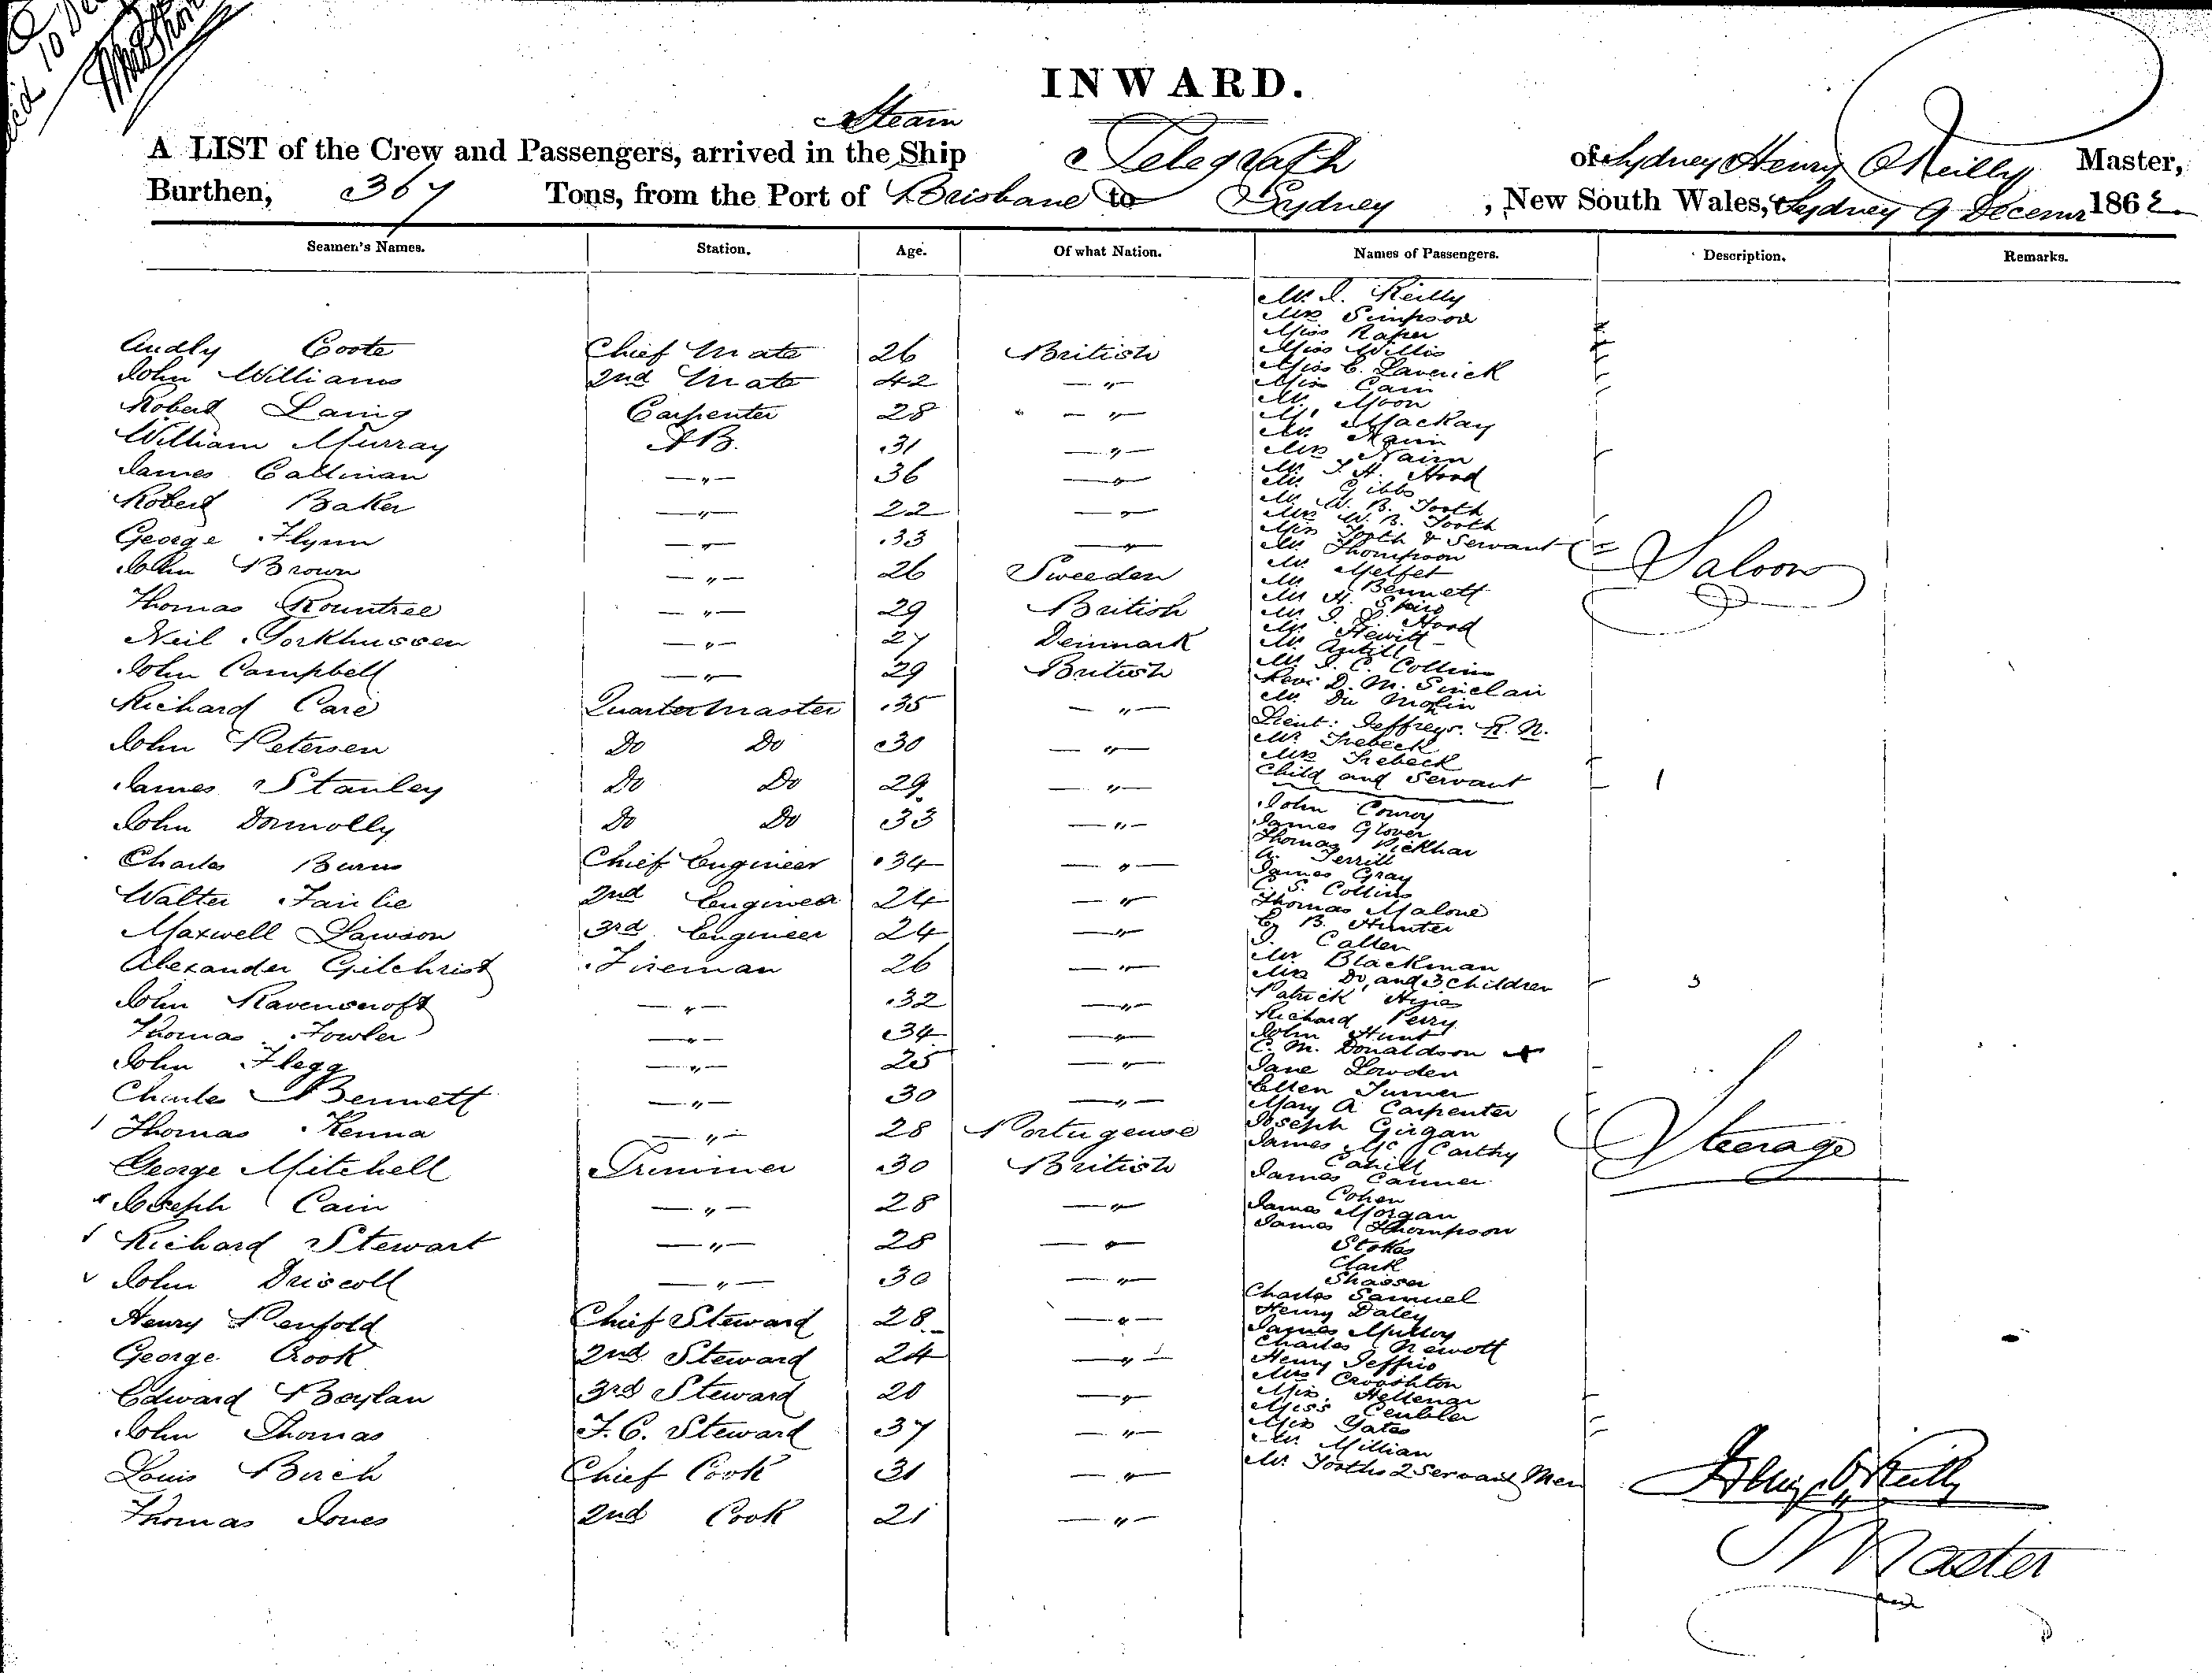 recd 10 Dec
INWARD.
Steam
A LIST of the Crew and Passengers, arrived in the Ship Telegraph of Sydney Henry O'Reilly Master,
Burthen, 367 Tons, from the Port of Brisbane to Sydney, New South Wales, Sydney 9 Decemr 1862.
Seamen's Names. Station. Age. Of what Nation. Names of Passengers. Description. Remarks.
Audly Coote Chief Mate 26 British
John Williams 2nd Mate 42 — " —
Robert Laing Carpenter 28 — " —
William Murray AB. 31 — " —
James Callinan — " — 36 — " —
Robert Baker — " — 22 — " —
George Flynn — " — 33 — " —
John Brown — " — 26 Sweeden
Thomas Rountree — " — 29 British
Neil Yorkhussen — " — 27 Denmark
John Campbell — " — 29 British
Richard Care Quartermaster 35 — " —
John Petersen Do Do 30 — " —
James Stanley Do Do 29 — " —
John Donnolly Do Do 33 — " —
Charles Burns Chief Engineer 34 — " —
Walter Fairlie 2nd Engineer 24 — " —
Maxwell Lawson 3rd Engineer 24 — " —
Alexander Gilchrist Fireman 26 — " —
John Ravenscroft — " — 32 — " —
Thomas Fowler — " — 34 — " —
John Flegg — " — 25 — " —
Charles Bennett — " — 30 — " —
Thomas Kenna — " — 28 Portugeuse
George Mitchell Trimmer 30 British
Joseph Cain — " — 28 — " —
Richard Stewart — " — 28 — " —
John Driscoll — " — 30 — " —
Henry Penfold Chief Steward 28 — " —
George Crook 2nd Steward 24 — " —
Edward Boylan 3rd Steward 20 — " —
John Thomas F.C. Steward 37 — " —
Louis Birch Chief Cook 31 — " —
Thomas Jones 2nd Cook 21 — " —
Mr. J. Reilly
Mrs Simpson
Miss Raper
Miss Willis
Miss C. Laverick
Miss Cain
Mr. Moon
Mr. Mackay
Mr. Nairn
Mrs Nairn
Mr. J. H. Hood
Mr. Gibbs
Mr. W. B. Tooth
Mrs W. B. Tooth
Miss Tooth & Servant
Mr. Thompson
Mr. Melfet
Mr. Bennett
Mr H. Spiro
Mr. J. L. Hood
Mr. Hewitt
Mr. Antill
Mr. J. C. Collins
Revd D. M. Sinclair
Mr. Du Molin
Lieut: Jeffreys. R. N.
Mr Trebeck
Mrs Trebeck
Child and Servant 1
Saloon
John Conroy
James Glover
Thomas Pickhar
A. Terrill
James Gray
C. S. Collins
Thomas Malone
B. Hunter
J. Callen
Mr Blackman
Mrs Do, and 3 Children 3
Patrick
Richard Perry
John Hunt
C. M. Donaldson
Jane Lowden
Ellen Turner
Mary A Carpenter
Joseph Girgan
James Mc Carthy
Cahill
James Canner
Cohen
James Morgan
James Thompson
Stokes
Clark
Shasser
Charles Samuel
Henry Daley
James Mulloy
Charles Newott
Henry Jeffris
Mrs Crooshton
Miss Hellenar
Miss Ceubler
Miss Yates
Mr. Millian
Mr Tooths 2 Servant Men
Steerage
Henry O'Reilly
Master